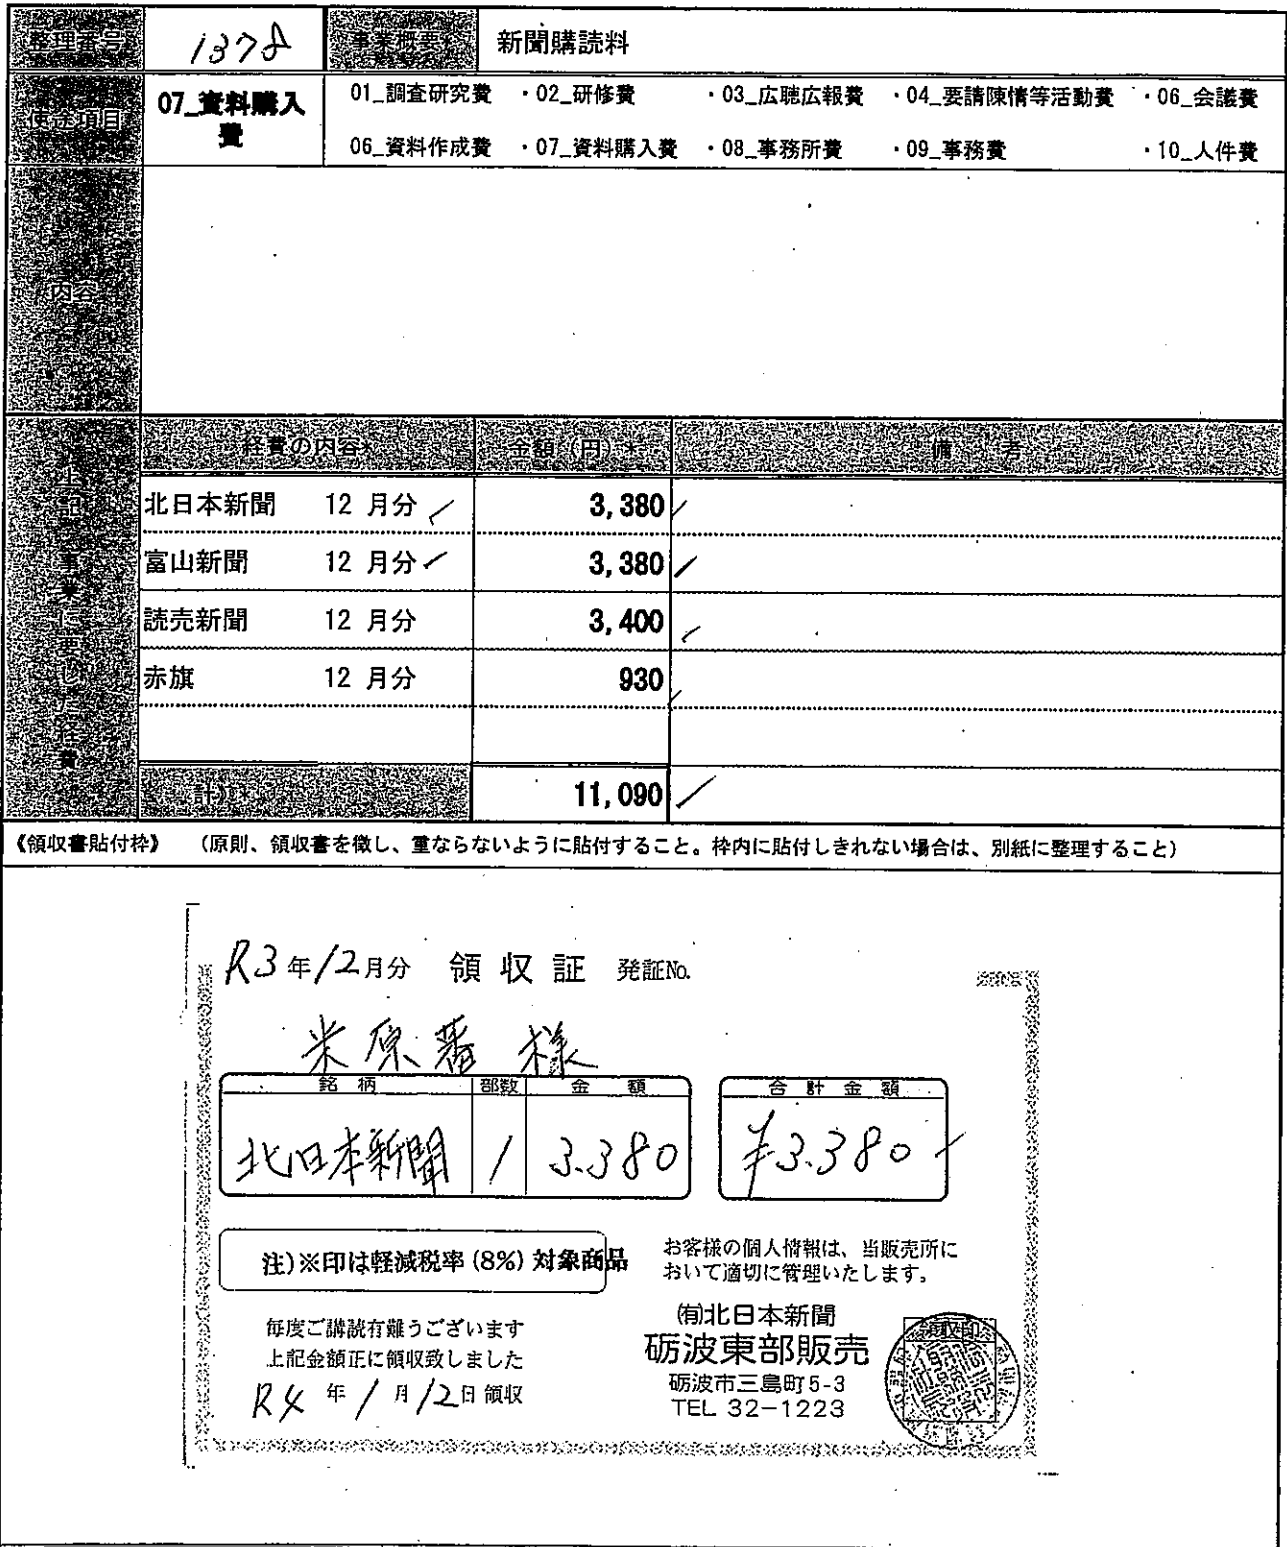 整理番号 1378 事業概要 新聞購読料
使途項目 07_資料購入費 01_調査研究費 ・02_研修費 ・03_広聴広報費 ・04_要請陳情等活動費 ・06_会議費
06_資料作成費 ・07_資料購入費 ・08_事務所費 ・09_事務費 ・10_人件費
内容
上記事業に要した経費
経費の内容 金額(円) 備考
北日本新聞 12 月分 3,380
富山新聞 12 月分 3,380
読売新聞 12 月分 3,400
赤旗 12 月分 930
計 11,090
《領収書貼付枠》 (原則、領収書を徴し、重ならないように貼付すること。枠内に貼付しきれない場合は、別紙に整理すること)
R3年12月分 領収証 発証No.
米原蕃 様
銘柄 部数 金額 合計金額
北日本新聞 1 3.380 ¥3.380
注)※印は軽減税率(8%)対象商品
お客様の個人情報は、当販売所に
おいて適切に管理いたします。
毎度ご購読有難うございます
上記金額正に領収致しました
R4年1月12日領収
㈲北日本新聞
砺波東部販売
砺波市三島町5-3
TEL 32-1223
領収印